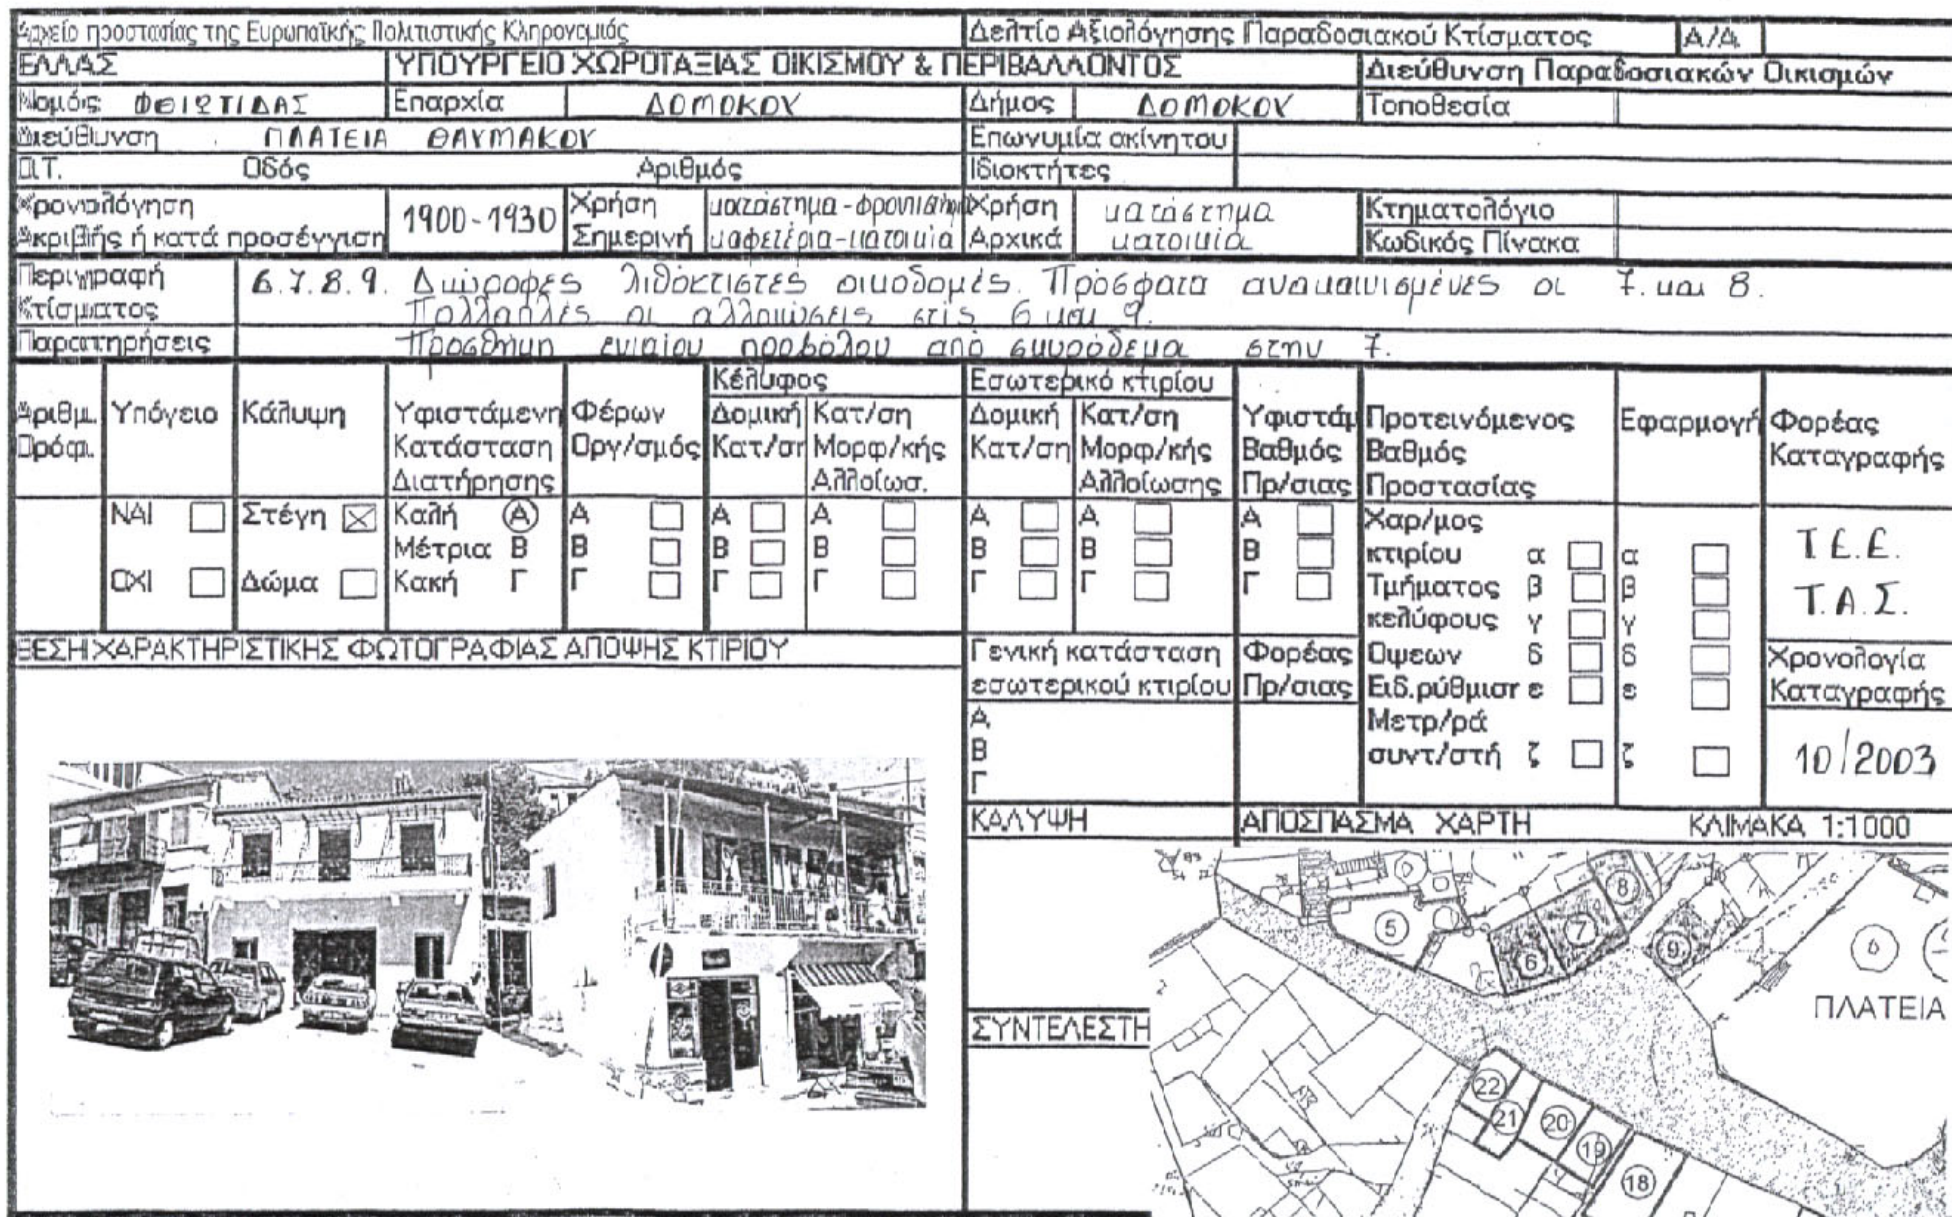 Αρχείο προστασίας της Ευρωπαϊκής Πολιτιστικής Κληρονομιάς
Δελτίο Αξιολόγησης Παραδοσιακού Κτίσματος Α/Α
ΕΛΛΑΣ ΥΠΟΥΡΓΕΙΟ ΧΩΡΟΤΑΞΙΑΣ ΟΙΚΙΣΜΟΥ & ΠΕΡΙΒΑΛΛΟΝΤΟΣ Διεύθυνση Παραδοσιακών Οικισμών
Νομός ΦΘΙΩΤΙΔΑΣ Επαρχία ΔΟΜΟΚΟΥ Δήμος ΔΟΜΟΚΟΥ Τοποθεσία
Διεύθυνση ΠΛΑΤΕΙΑ ΘΑΥΜΑΚΟΥ Επωνυμία ακίνητου
Ο.Τ. Οδός Αριθμός Ιδιοκτήτες
Χρονολόγηση
Ακριβής ή κατά προσέγγιση
1900-1930
Χρήση
Σημερινή
κατάστημα-φροντιστήριο
καφετέρια-κατοικία
Χρήση
Αρχικά
κατάστημα
κατοικία
Κτηματολόγιο
Κωδικός Πίνακα
Περιγραφή
Κτίσματος
6.7.8.9. Διώροφες λιθόκτιστες οικοδομές. Πρόσφατα ανακαινισμένες οι 7. και 8.
Πολλαπλές οι αλλοιώσεις στις 6 και 9.
Παρατηρήσεις Προσθήκη ενιαίου προβόλου από σκυρόδεμα στην 7.
Αριθμ.
Ορόφ.
Υπόγειο
ΝΑΙ
ΟΧΙ
Κάλυψη
Στέγη
Δώμα
Υφιστάμενη
Κατάσταση
Διατήρησης
Καλή Α
Μέτρια Β
Κακή Γ
Φέρων
Οργ/σμός
Α
Β
Γ
Κέλυφος
Δομική
Κατ/ση
Α
Β
Γ
Κατ/ση
Μορφ/κής
Αλλοίωσ.
Α
Β
Γ
Εσωτερικό κτιρίου
Δομική
Κατ/ση
Α
Β
Γ
Κατ/ση
Μορφ/κής
Αλλοίωσης
Α
Β
Γ
Υφιστάμ
Βαθμός
Πρ/σιας
Α
Β
Γ
Προτεινόμενος
Βαθμός
Προστασίας
Χαρ/μος
κτιρίου α
Τμήματος β
κελύφους γ
Οψεων δ
Ειδ.ρύθμιση ε
Μετρ/ρά
συντ/στή ζ
Εφαρμογή
α
β
γ
δ
ε
ζ
Φορέας
Καταγραφής
Τ.Ε.Ε.
Τ.Α.Σ.
Χρονολογία
Καταγραφής
10/2003
ΘΕΣΗ ΧΑΡΑΚΤΗΡΙΣΤΙΚΗΣ ΦΩΤΟΓΡΑΦΙΑΣ ΑΠΟΨΗΣ ΚΤΙΡΙΟΥ
Γενική κατάσταση
εσωτερικού κτιρίου
Α
Β
Γ
Φορέας
Πρ/σιας
ΚΑΛΥΨΗ
ΑΠΟΣΠΑΣΜΑ ΧΑΡΤΗ ΚΛΙΜΑΚΑ 1:1000
ΣΥΝΤΕΛΕΣΤΗ
5
6
7
8
9
ΠΛΑΤΕΙΑ
22
21
20
19
18